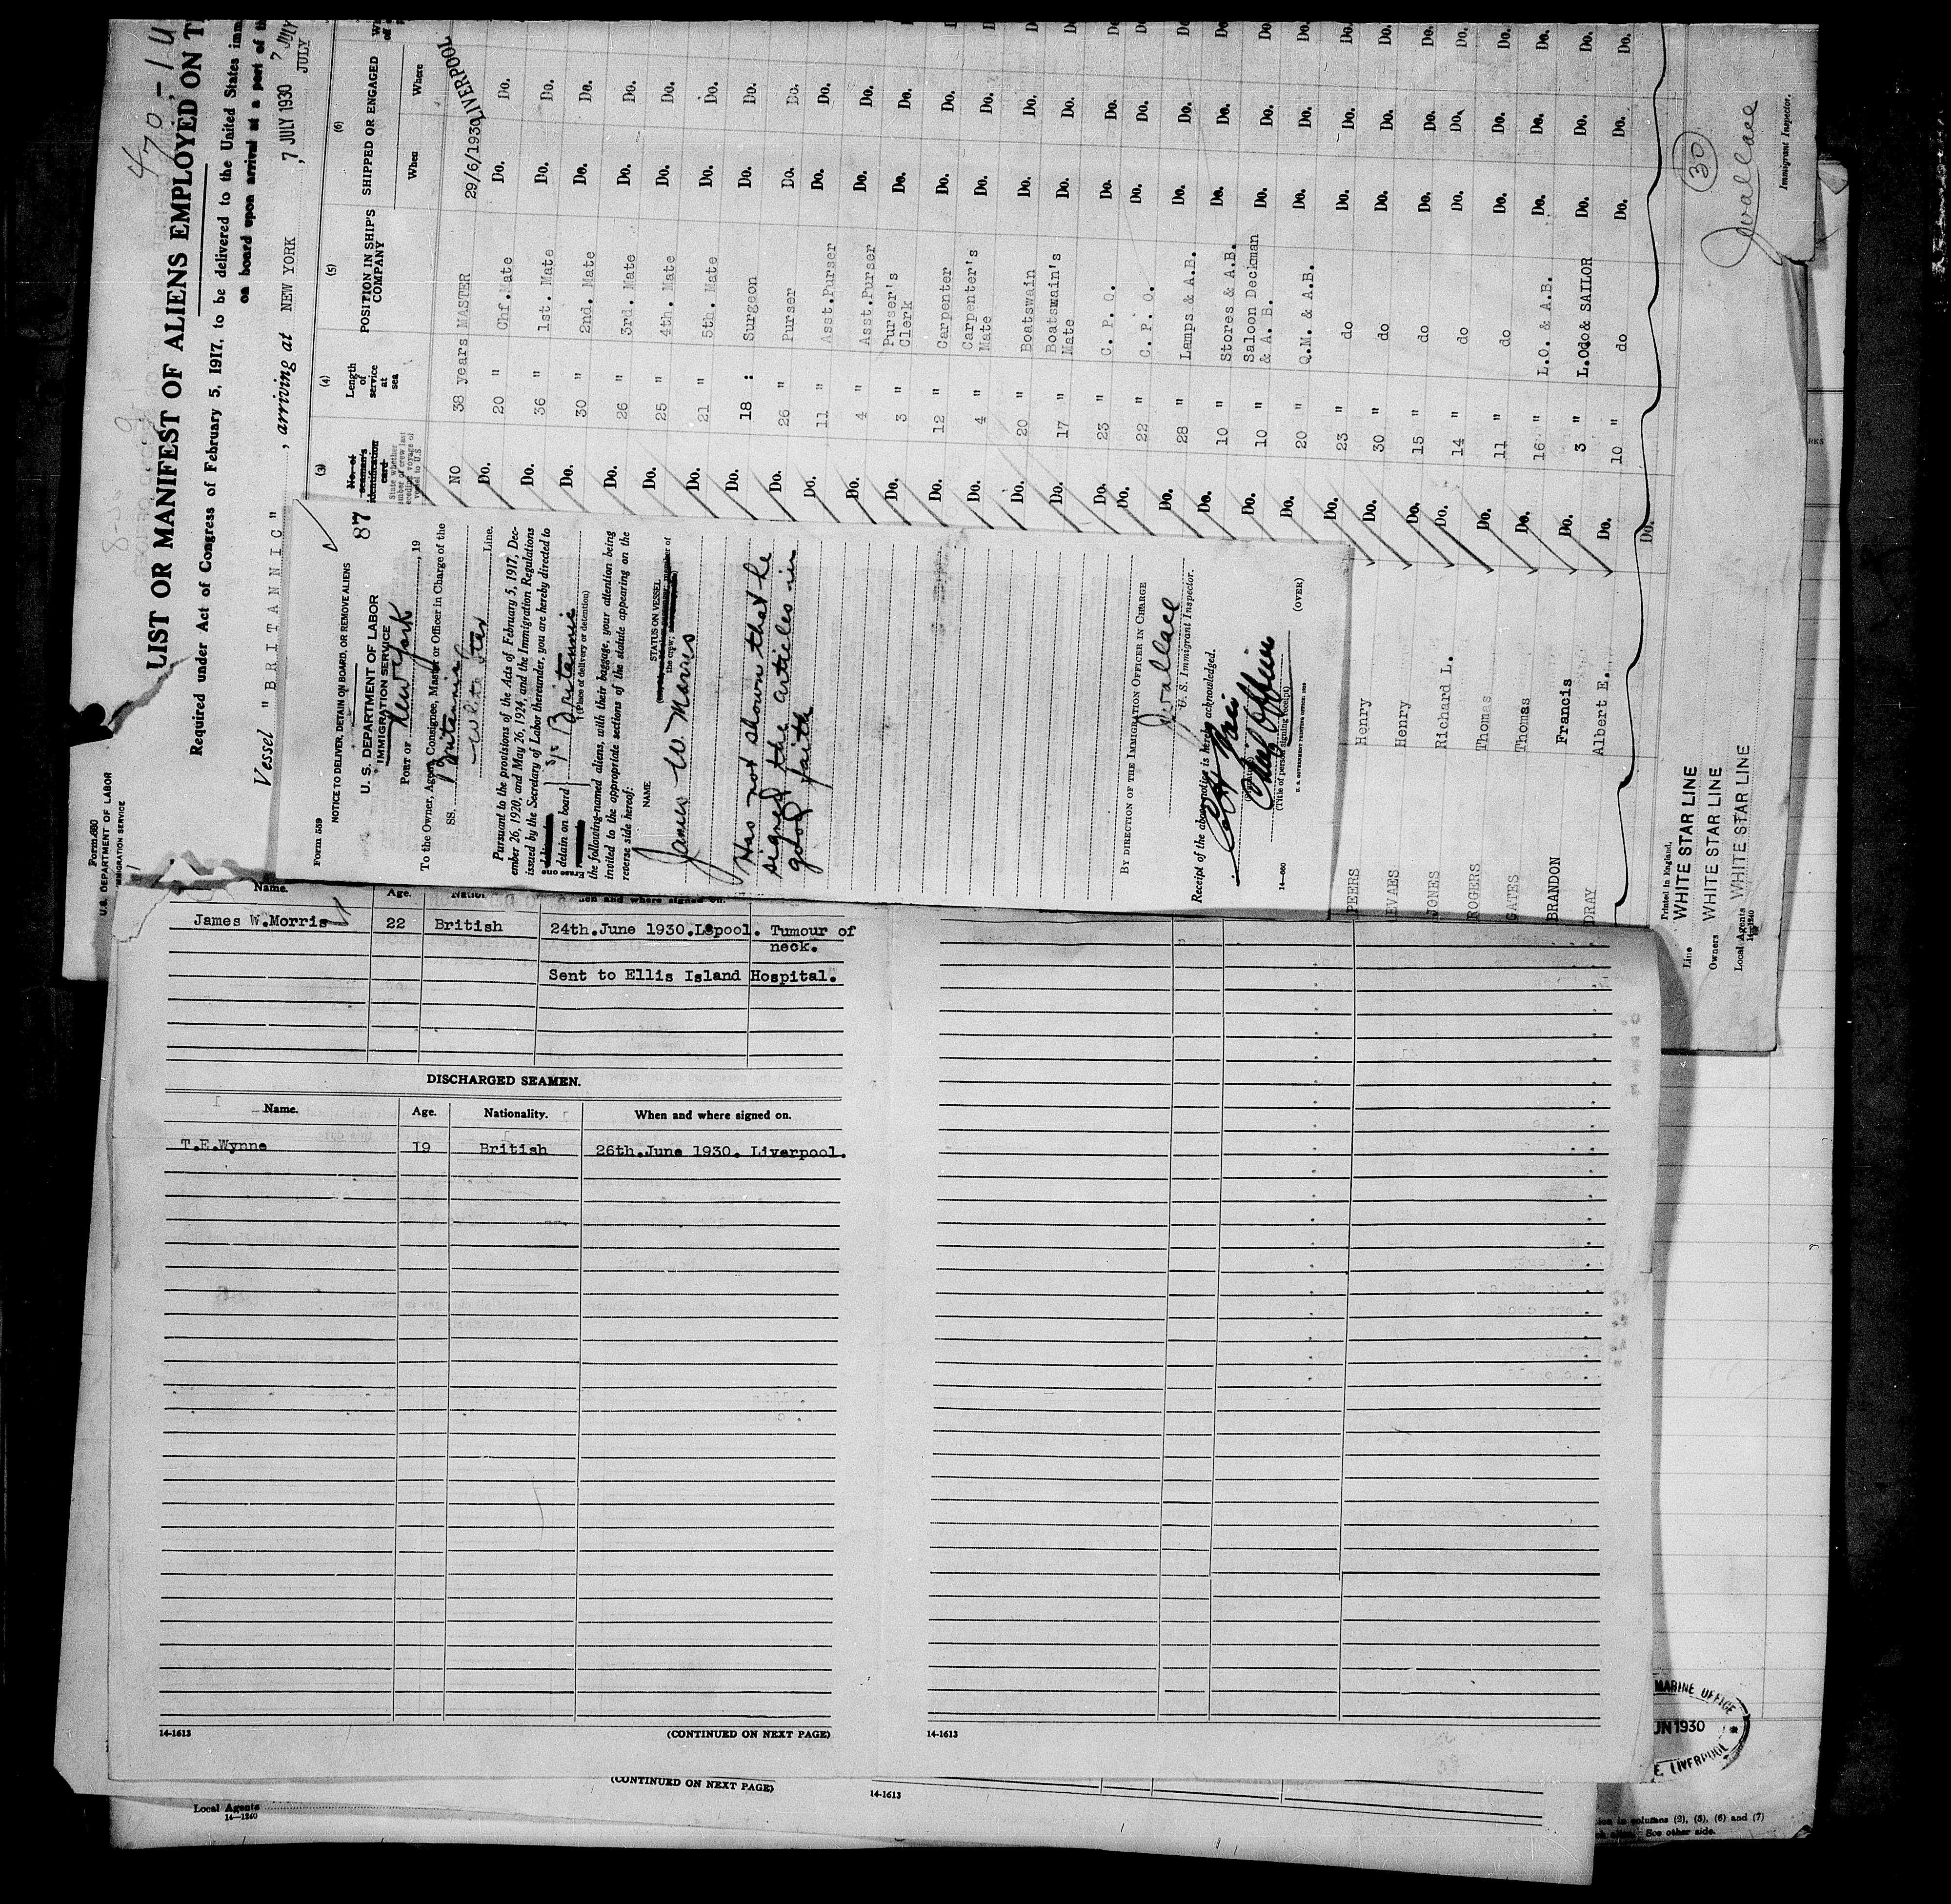 470-1
LIST OR MANIFEST OF ALIENS EMPLOYED ON T
Required under Act of Congress of February 5, 1917, to be delivered to the United States imm
on board upon arrival at a port of th
Vessel "BRITANNIC", arriving at NEW YORK, 7 JULY 1930 7 JULY
JULY
Form 680
U.S. DEPARTMENT OF LABOR
IMMIGRATION SERVICE
(3) (4) (5) (6)
No. of seaman's identification card
State whether member of crew last preceding voyage of vessel to U.S.
Length of service at sea
POSITION IN SHIP'S COMPANY
SHIPPED OR ENGAGED
When Where
NO 38 years MASTER 29/6/1930 LIVERPOOL
Do. 20 " Chf. Mate Do. Do.
Do. 36 " 1st. Mate Do. Do.
Do. 30 " 2nd. Mate Do. Do.
Do. 26 " 3rd. Mate Do. Do.
Do. 25 " 4th. Mate Do. Do.
Do. 21 " 5th. Mate Do. Do.
Do. 18 : Surgeon Do. Do.
Do. 26 " Purser Do. Do.
Do. 11 " Asst.Purser Do. Do.
Do. 4 " Asst.Purser Do. Do.
Do. 3 " Purser's Clerk Do. Do.
Do. 12 " Carpenter Do. Do.
Do. 4 " Carpenter's Mate Do. Do.
Do. 20 " Boatswain Do. Do.
Do. 17 " Boatswain's Mate Do. Do.
Do. 23 " C. P. O. Do. Do.
Do. 22 " C. P. O. Do. Do.
Do. 28 " Lamps & A.B. Do. Do.
Do. 10 " Stores & A.B. Do. Do.
Do. 10 " Saloon Deckman & A. B. Do. Do.
Do. 20 " Q.M. & A.B. Do. Do.
PEERS Henry Do. 23 " do Do. Do.
EVAES Henry Do. 30 " do Do. Do.
JONES Richard L. Do. 15 " do Do. Do.
ROGERS Thomas Do. 14 " do Do. Do.
GATES Thomas Do. 11 " do Do. Do.
BRANDON Francis Do. 16 " L.O. & A.B. Do. Do.
DRAY Albert E. Do. 3 " L.Odo& SAILOR Do. Do.
Do. 10 " do Do. Do.
Printed in England.
Line WHITE STAR LINE
Owners WHITE STAR LINE
Local Agents WHITE STAR LINE
14-1240
30
Jwallace
Immigrant Inspector.
Form 559
NOTICE TO DELIVER, DETAIN ON BOARD, OR REMOVE ALIENS
87
U. S. DEPARTMENT OF LABOR
IMMIGRATION SERVICE
PORT OF New York, 19
To the Owner, Agent, Consignee, Master or Officer in Charge of the
SS. Britannic White Star Line.
Pursuant to the provisions of the Acts of February 5, 1917, Dec-
ember 26, 1920, and May 26, 1924, and the Immigration Regulations
issued by the Secretary of Labor thereunder, you are hereby directed to
Erase one
detain on board S/S Britannic
(Place of delivery or detention)
the following-named aliens, with their baggage, your attention being
invited to the appropriate sections of the statute appearing on the
reverse side hereof:
NAME STATUS ON VESSEL
James W. Morris
Has not shown that he
signed the articles in
good faith
BY DIRECTION OF THE IMMIGRATION OFFICER IN CHARGE
Jwallace
U. S. Immigrant Inspector.
Receipt of the above notice is hereby acknowledged.
Chief Officer
(Title of person signing receipt)
14-660 U. S. GOVERNMENT PRINTING OFFICE
(OVER)
Name. Age.
James W.Morris 22 British 24th.June 1930.Lepool. Tumour of
neck.
Sent to Ellis Island Hospital.
DISCHARGED SEAMEN.
Name. Age. Nationality. When and where signed on.
T.E.Wynne 19 British 26th.June 1930. Liverpool.
14-1613 (CONTINUED ON NEXT PAGE) 14-1613
(CONTINUED ON NEXT PAGE) 14-1613
Local Agents
14-1240
MARINE OFFICE
UN 1930
LIVERPOOL
in columns (2), (5), (6) and (7)
See other side.